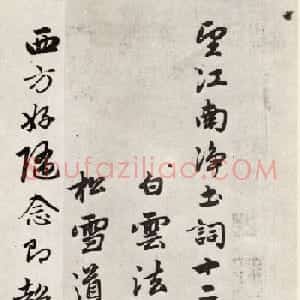 望江南淨土詞十二
白雲法
松雪道
西方好隨念即超
Shufaziliao.com